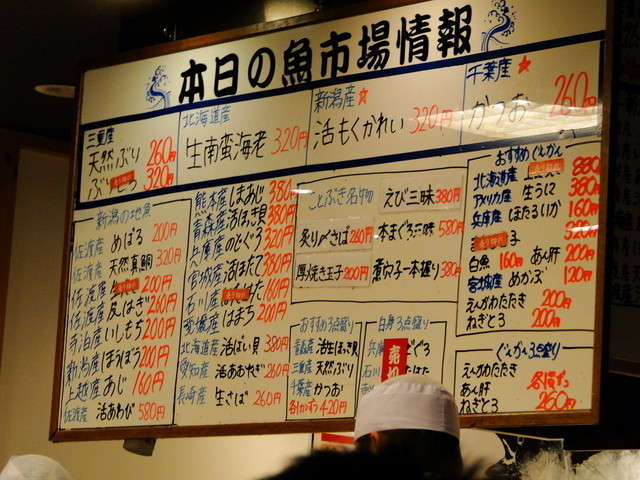 本日の魚市場情報
三重産
天然ぶり 260円
320円
北海道産
生南蛮海老 320円
新潟産
活もくかれい 320円
千葉産
かつお 260円
新潟の地魚
佐渡産 めばる 200円
佐渡産 天然真鯛 320円
佐渡産 200円
佐渡産 皮はぎ 260円
寺泊産 いしもち 200円
新潟産 ほうぼう 200円
上越産 あじ 160円
佐渡産 活あわび 580円
熊本産 しまあじ 380円
青森産 活ほっき貝 380円
兵庫産 のどぐろ 320円
宮城産 活ほたて 380円
石川産 160円
愛媛産 はまち 200円
北海道産 活ばい貝 380円
愛知産 活あおやぎ 260円
長崎産 生さば 260円
ことぶき名物
えび三昧 380円
炙り〆さば 260円
本まぐろ三昧 580円
厚焼き玉子 200円
煮穴子一本握り 380円
おすすめ3点盛り
青森産 活生ほっき貝
三重産 天然ぶり
千葉産 かつお
各1かんずつ 420円
白身3点盛り
兵庫 のどぐろ
石川
売切
おすすめぐんかん
北海道産 880円
アメリカ産 生うに 380円
兵庫産 ほたるいか 160円
320円
白魚 160円 あん肝 200円
宮城産 めかぶ 120円
えんがわたたき 200円
ねぎとろ 200円
ぐんかん3点盛り
えんがわたたき
あん肝
ねぎとろ
各1貫ずつ
260円